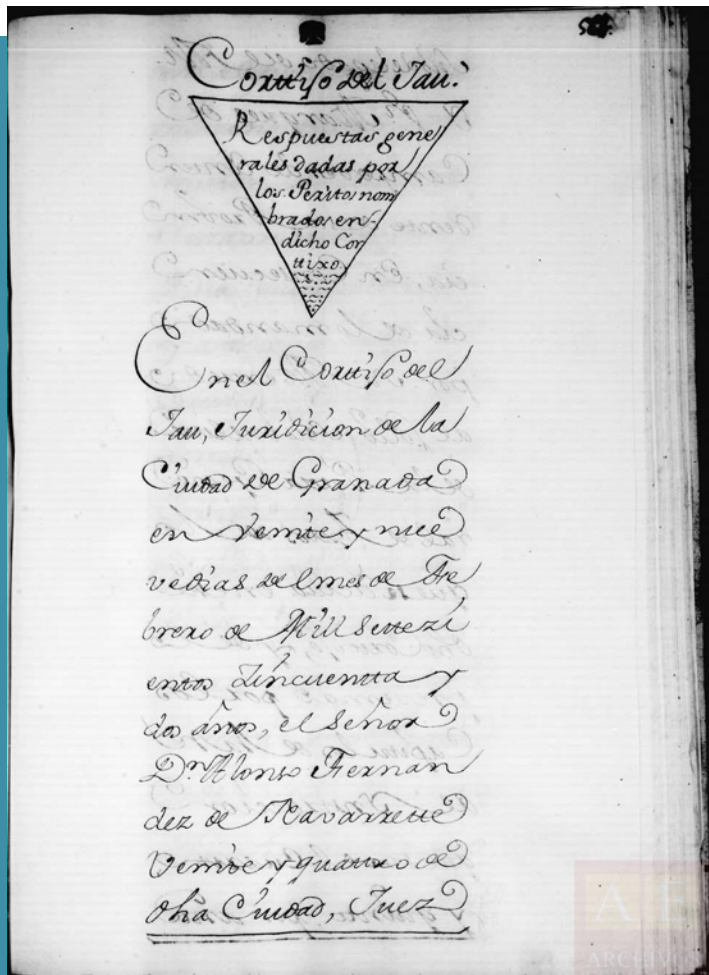 524.
Corttijo del Jau.
Respuestas gene
rales dadas por
los Peritos nom
brados en
dicho Cor
ttixo
En el Corttijo del
Jau, Juridicion de la
Ciudad de Granada
en Veintte y nue
ve dias del mes de Fe
brero de Mill Settezi
entos Zincuentta y
dos años, el Señor
Dn. Alonso Fernan
dez de Navarrette
Veintte y quattro de
dha Ciudad, Juez
A E
ARCHIVOS